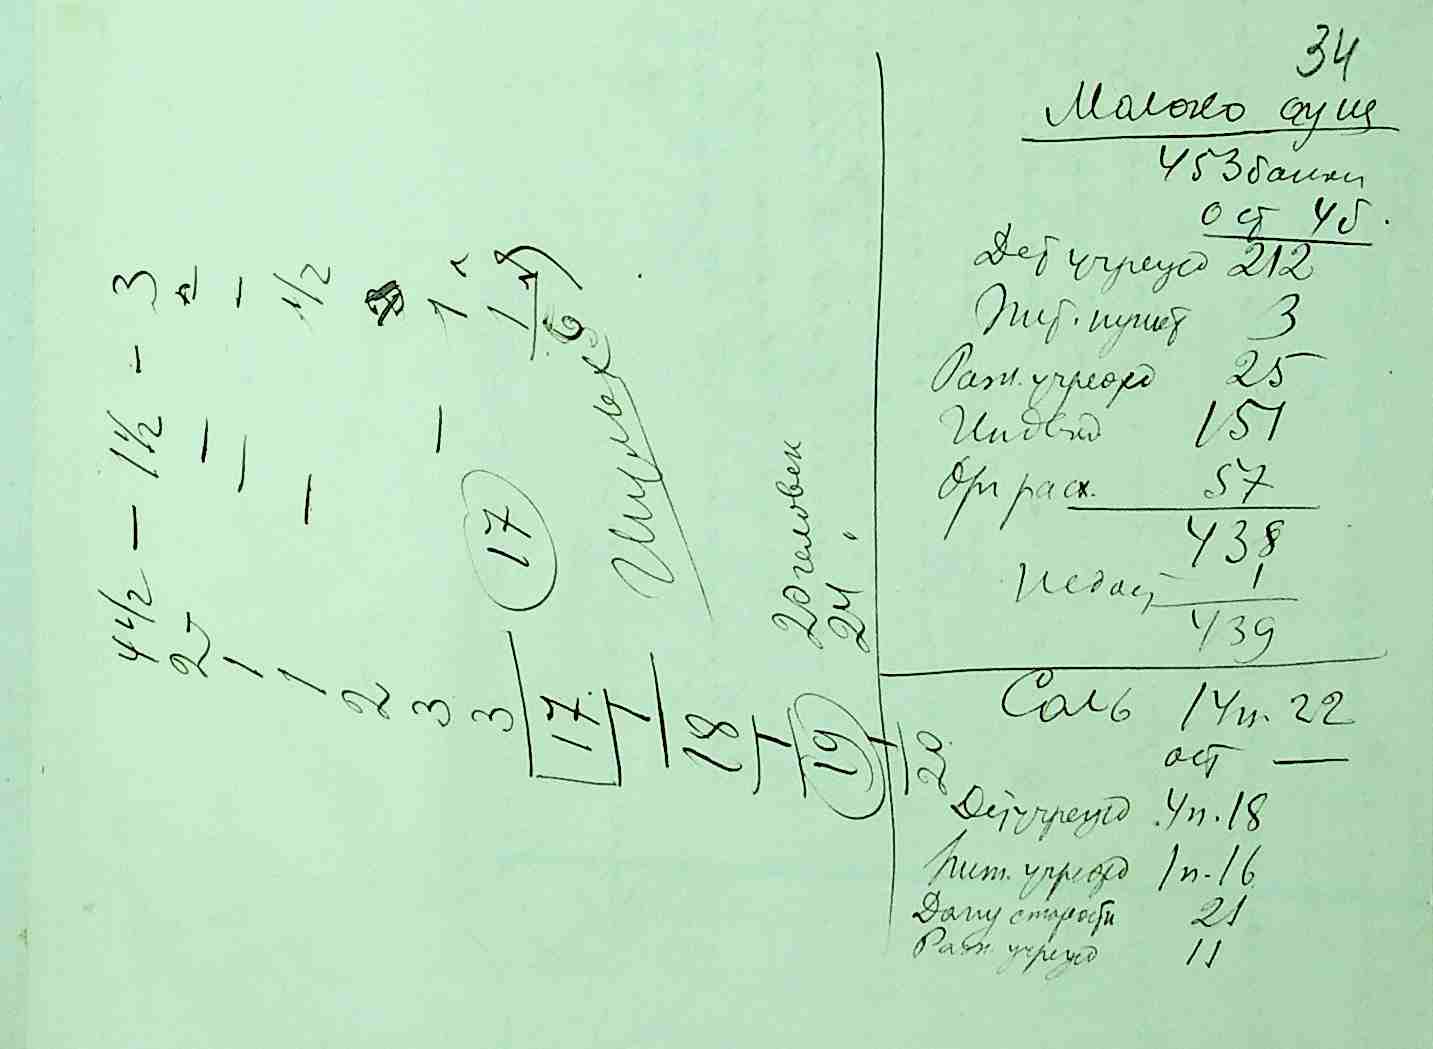 34
Молоко сущ
453 банки
ост 45.
Дет учрежд 212
Пит. пункт 3
Разн. учрежд 25
Индивид 151
Орг расх. 57
438
Недост 1
439
Соль 14п. 22
ост —
Дет учрежд 4п. 18
Пит. учрежд 1п. 16
Дому старости 21
Разн учрежд 11
4 1/2 — 1 1/2 — 3
2
1
1
2
3
3
17
1
18
1
19
1
20
17
20 человек
24 "